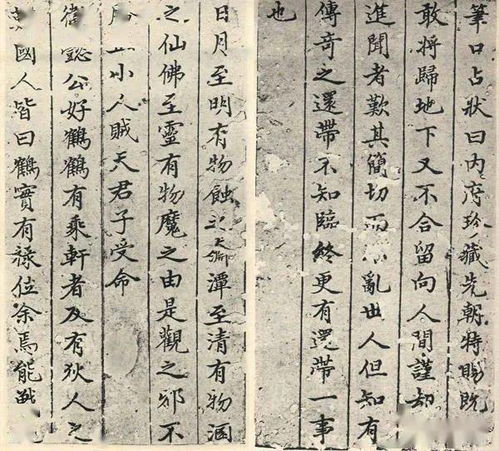 筆口占狀曰內府珍藏先朝特賜既
敢將歸地下又不合留向人間謹却
進聞者歎其簡切而不亂世人但知有
傳奇之還帶不知臨終更有還帶一事
也
日月至明有物蝕之潭至清有物涸
之仙佛至靈有物魔之由是觀之邪不
小人賊天君子受命
衛懿公好鶴鶴有乘軒者及有狄人之
國人皆曰鶴實有祿位余焉能戰